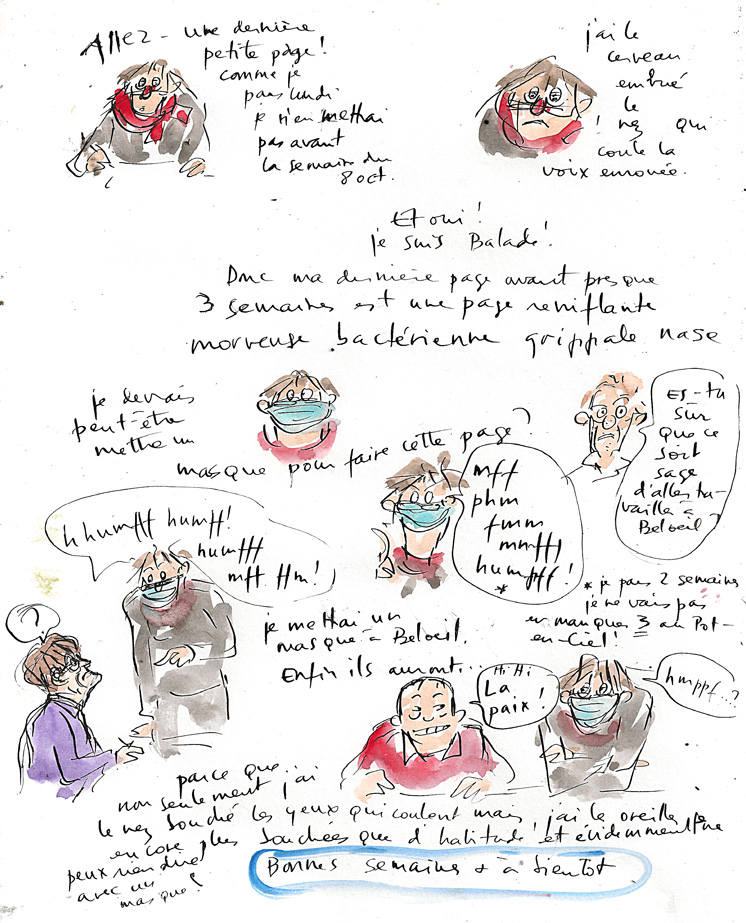 Allez - une dernière
petite page!
comme je
pars lundi
je n'en mettrai
pas avant
la semaine du
8 oct.
j'ai le
cerveau
embué
le
nez qui
coule la
voix enrouée.
Et oui!
je suis Balade!
Donc ma dernière page avant presque
3 semaines est une page reniflante
morveuse bactérienne grippale nase
je devrais
peut-être
mettre un
masque pour faire cette page?
Es-tu
sûr
que ce
soit
sage
d'aller tra-
vailler à
Beloeil?
mff
phm
fmm
mmfff
humpfff!
*
* je pars 2 semaines
je ne vais pas
en manquer 3 au Pot-
en-Ciel!
hhumfff humff!
humfff
mff ffm!
?
je mettrai un
masque à Beloeil.
Enfin ils auront...
Hi Hi
La
paix!
hmppf..?
parce que...
non seulement j'ai
le nez bouché les yeux qui coulent mais j'ai les oreilles
encore plus bouchées que d'habitude! et évidemment je ne
peux rien dire
avec un
masque!
Bonnes semaines & à bientôt